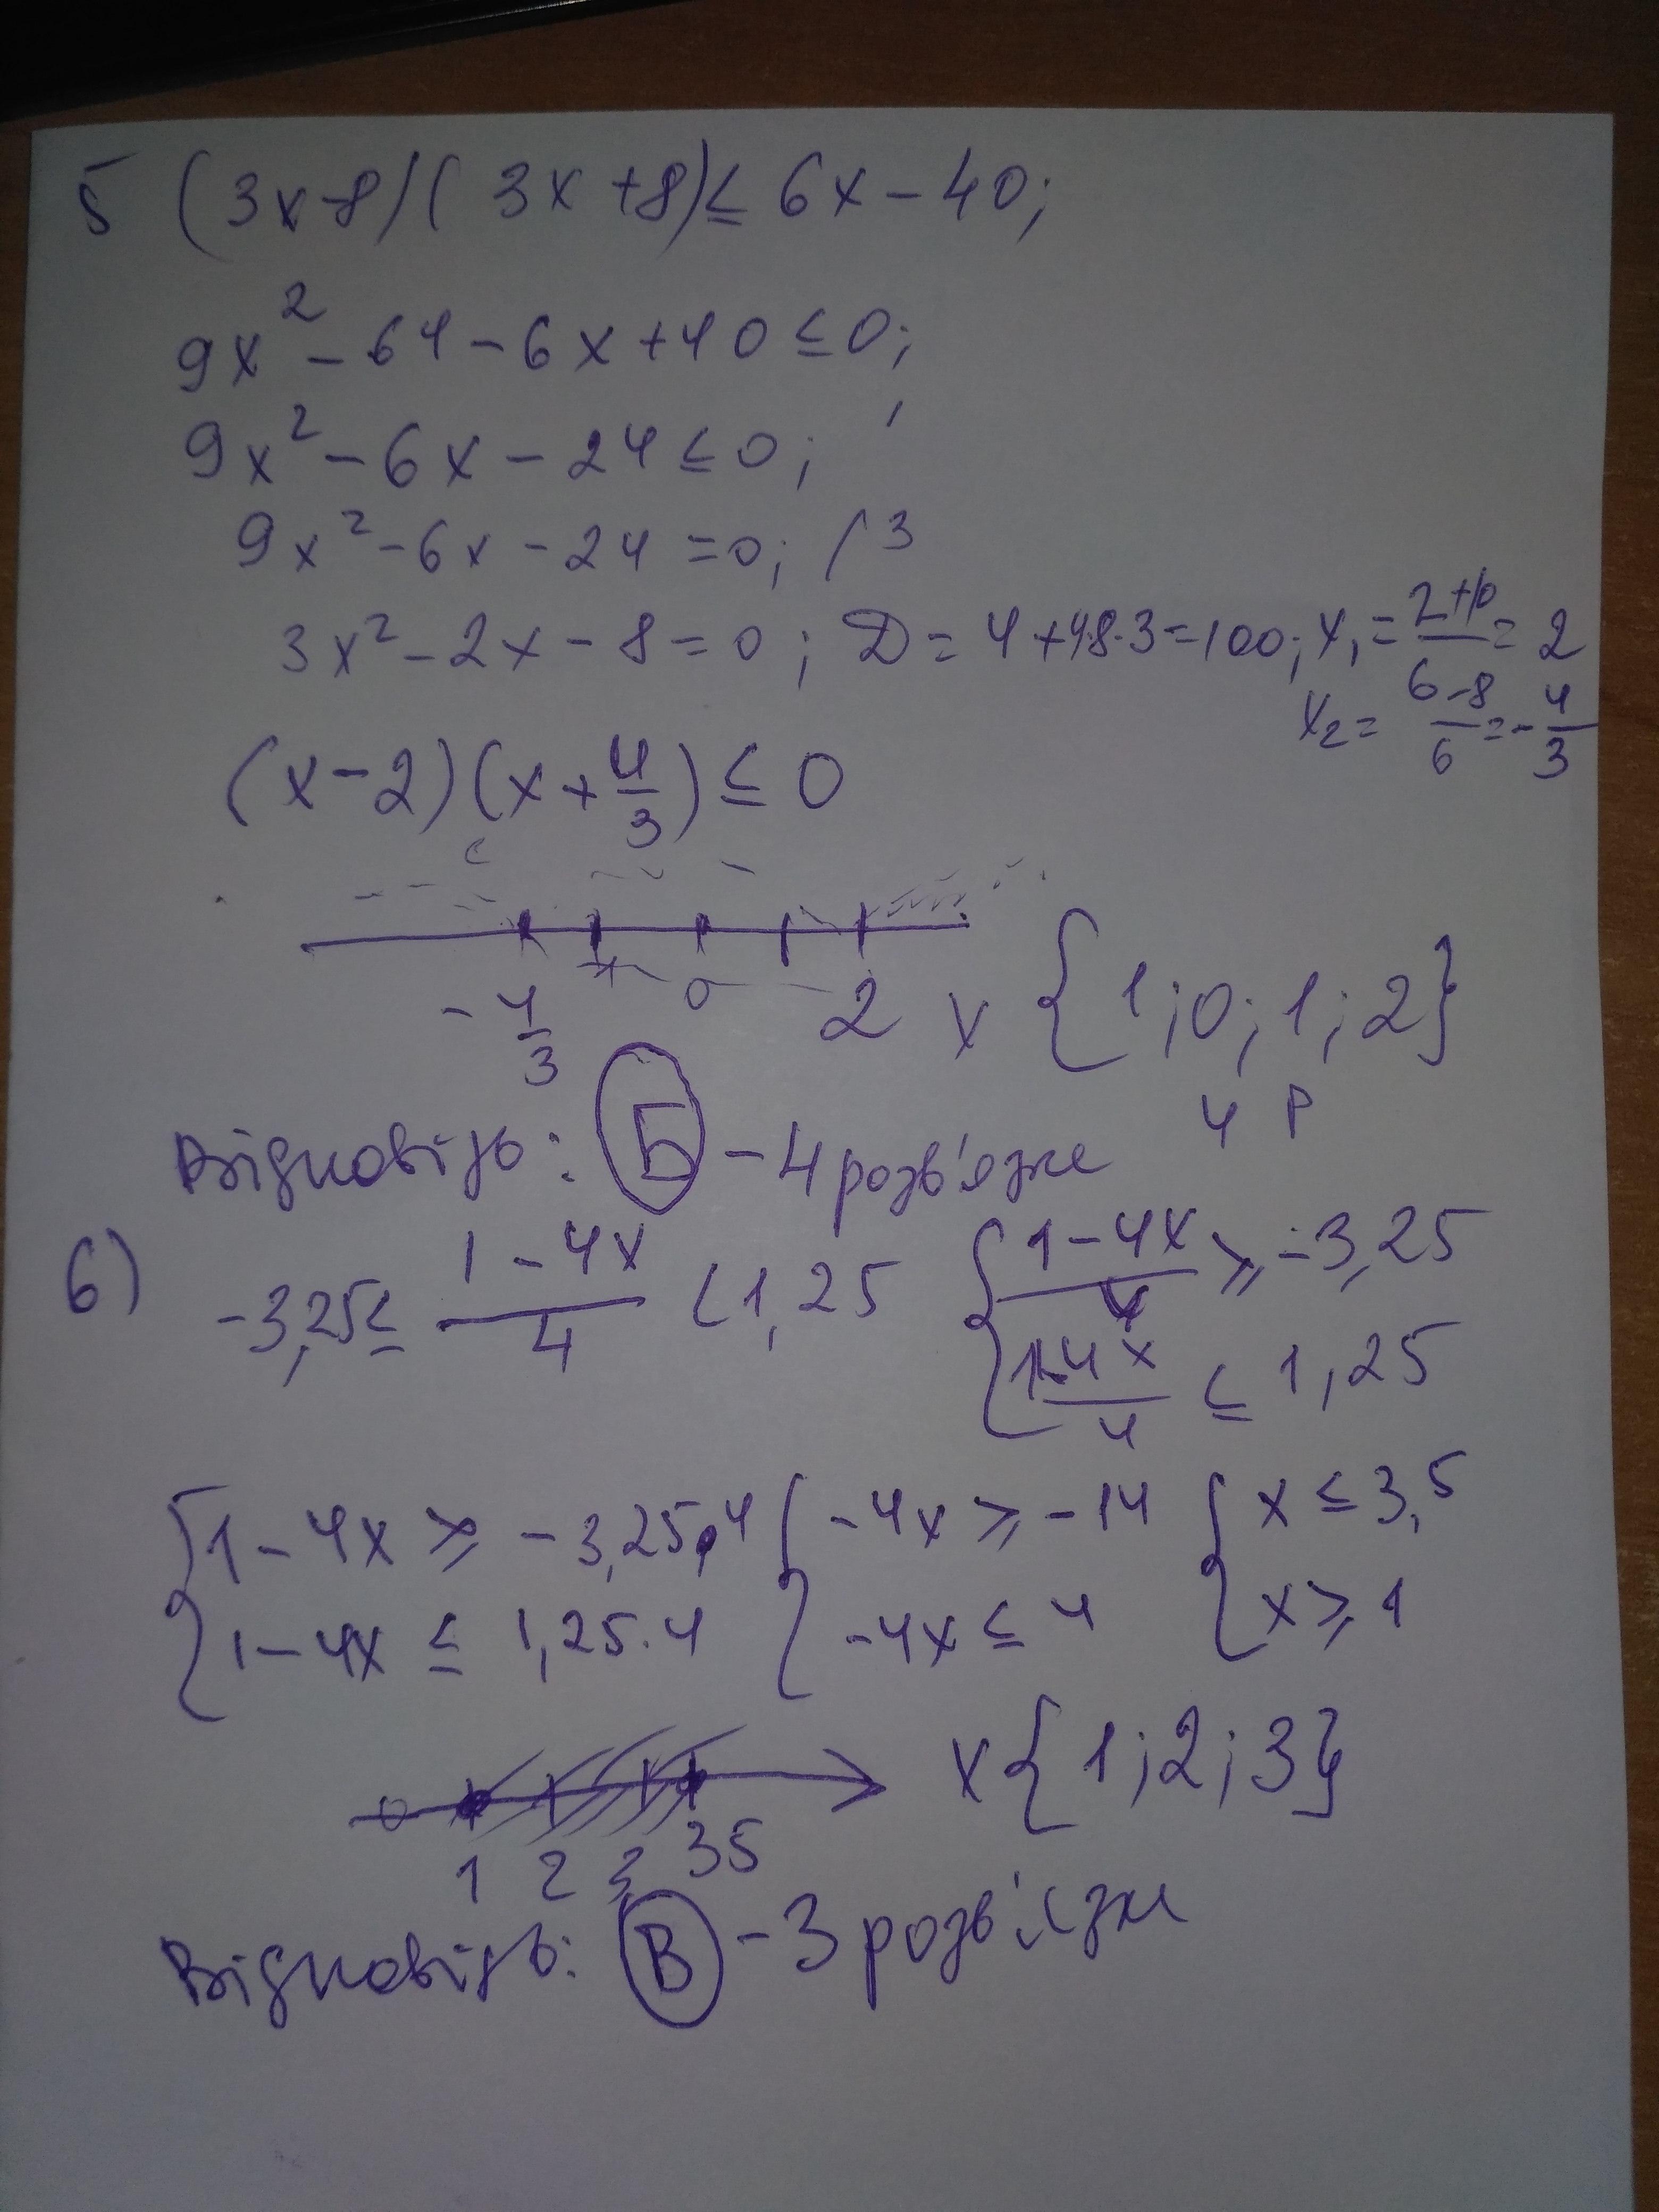 5 (3x-8)(3x+8)≤6x-40;
9x²-64-6x+40≤0;
9x²-6x-24≤0;
9x²-6x-24=0; /3
3x²-2x-8=0; D=4+4·8·3=100; x₁=(2+10)/6=2
x₂=-8/6=-4/3
(x-2)(x+4/3)≤0
-4/3 0 2 x{1;0;1;2}
4 р
Відповідь: Б - 4 розв'язки
6) -3,25≤(1-4x)/4<1,25 {(1-4x)/4≥-3,25
(1-4x)/4≤1,25
{1-4x≥-3,25·4 {-4x≥-14 {x≤3,5
1-4x≤1,25·4 -4x≤4 x≥1
0 x{1;2;3}
1 2 3 35
Відповідь: В - 3 розв'язки